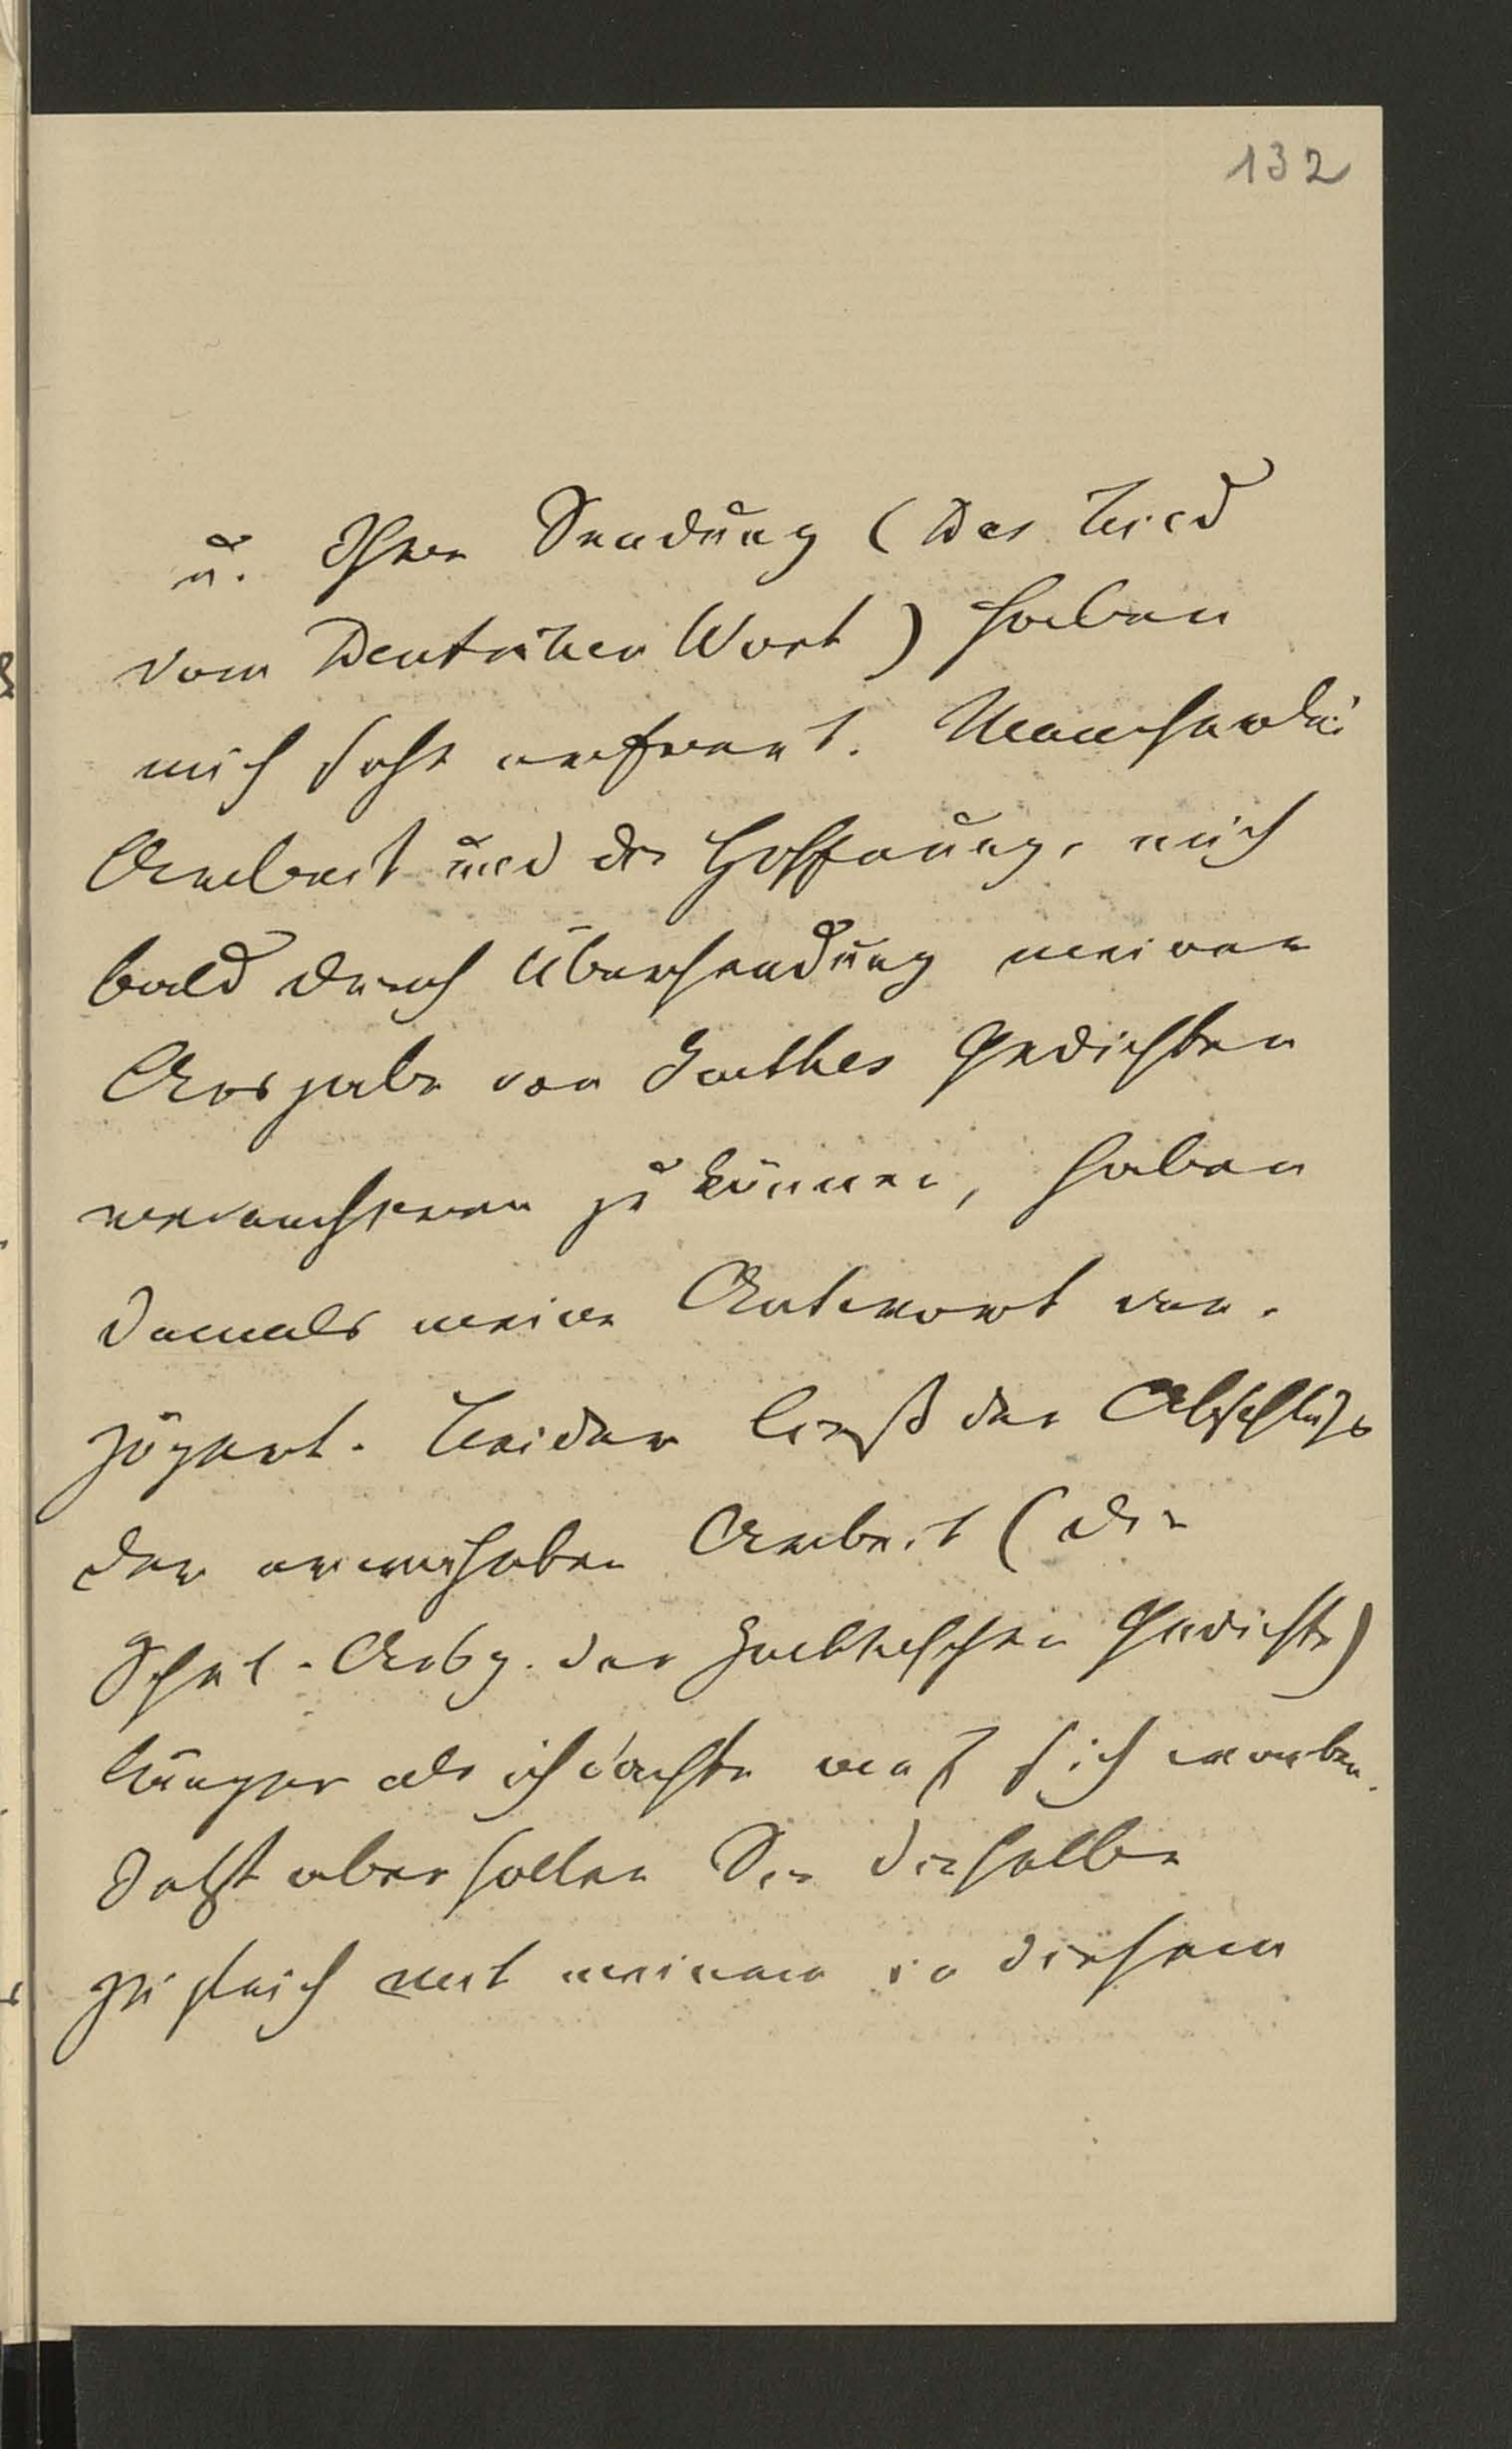 132
u. Ihre Sendung (Das Lied
vom Deutschen Wort) haben
mich sehr erfreut. Mancherlei
Arbeit und die Hoffnung, mich
bald durch Übersendung meiner
Ausgabe von Goethes Gedichten
revanchieren zu können, haben
damals meine Antwort ver-
zögert. Leider ließ der Abschluß
der Arbeit (die
Schul-Ausg. der Goetheschen Gedichte)
länger als ich dachte auf sich warten.
Jetzt aber sollen Sie dieselbe
zugleich mit meinem in diesem